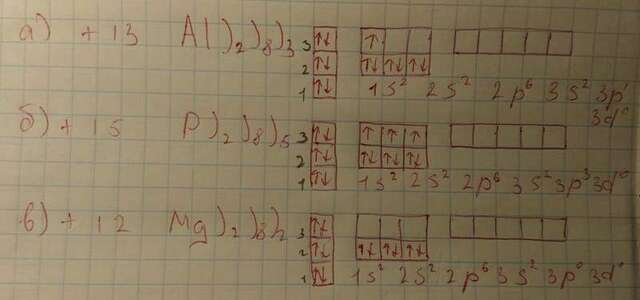 а) +13 Al )₂ )₈ )₃ 3 ↑↓ ↑
2 ↑↓ ↑↓ ↑↓ ↑↓
1 ↑↓ 1s² 2s² 2p⁶ 3s² 3p¹
3d⁰
б) +15 P )₂ )₈ )₅ 3 ↑↓ ↑ ↑ ↑
2 ↑↓ ↑↓ ↑↓ ↑↓
1 ↑↓ 1s² 2s² 2p⁶ 3s² 3p³ 3d⁰
в) +12 Mg )₂ )₈ )₂ 3 ↑↓
2 ↑↓ ↑↓ ↑↓ ↑↓
1 ↑↓ 1s² 2s² 2p⁶ 3s² 3p⁰ 3d⁰